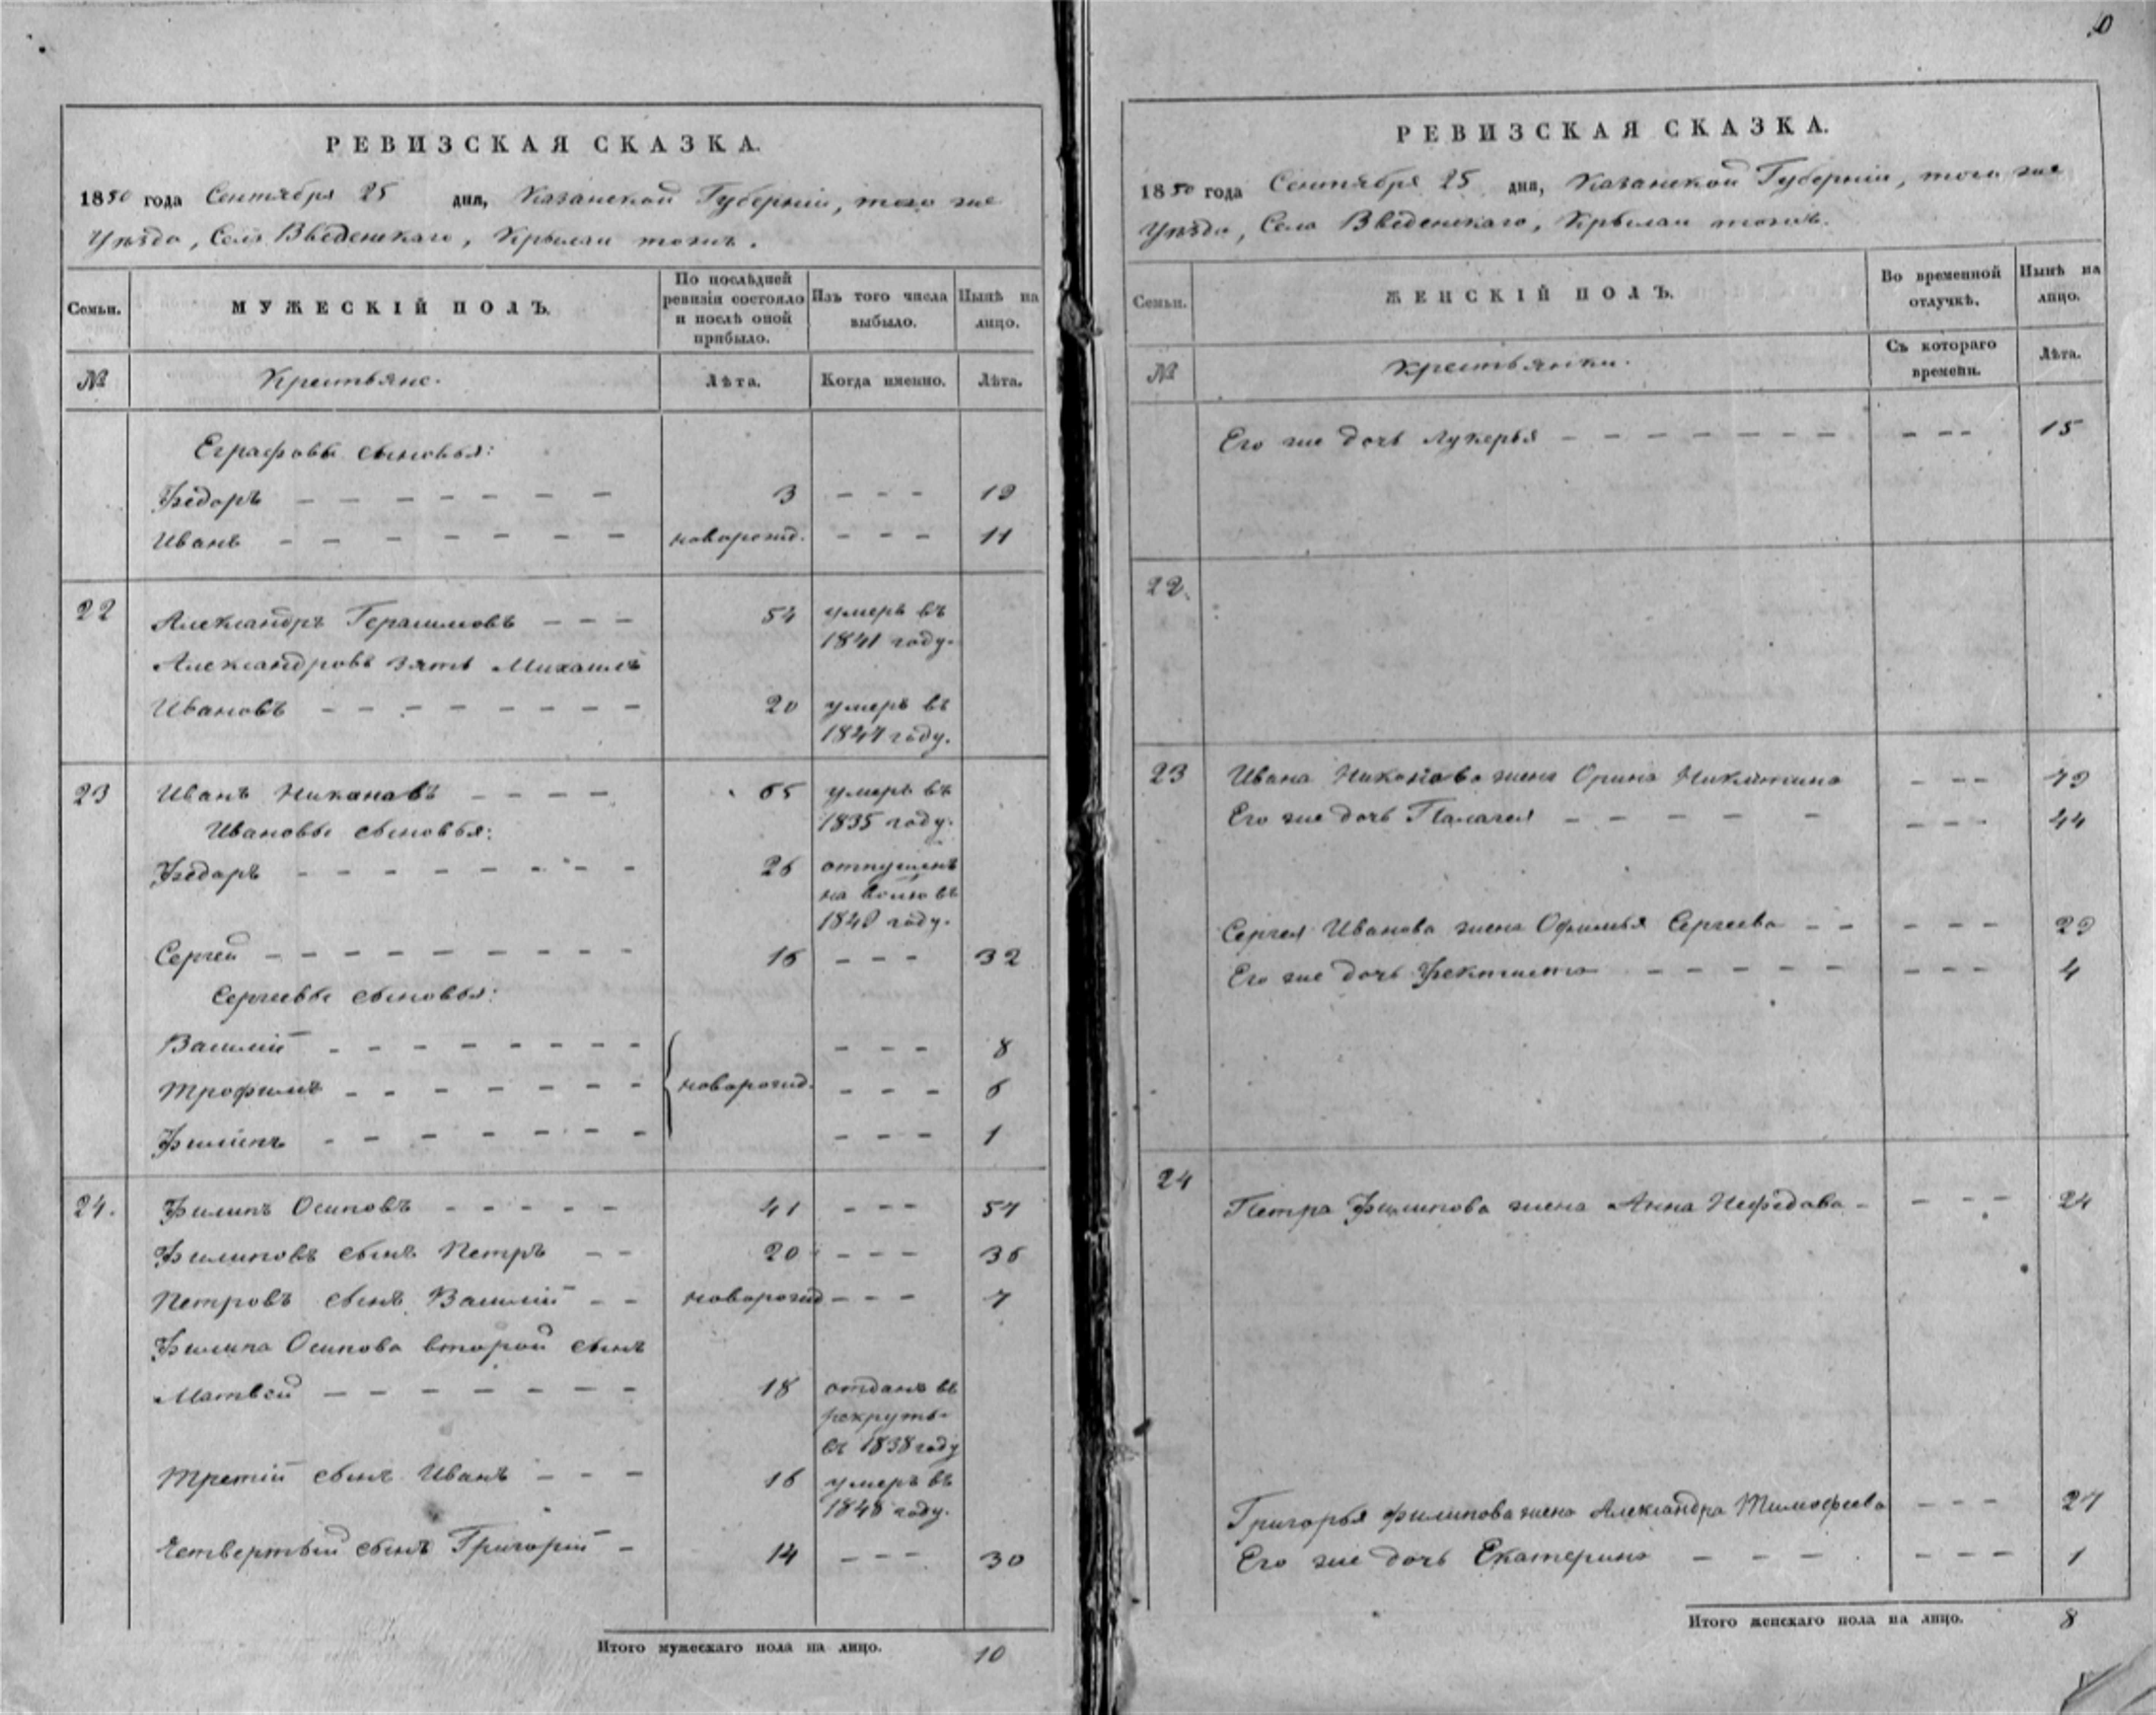 0
РЕВИЗСКАЯ СКАЗКА.
1850 года Сентября 25 дня, Казанской Губерніи, того же
Уѣзда, Села Введенскаго, Крылаи тожъ.
Семьи.
МУЖЕСКІЙ ПОЛЪ.
По послѣдней ревизіи состояло и послѣ оной прибыло.
Изъ того числа выбыло.
Нынѣ на лицо.
№
Крестьяне.
Лѣта.
Когда именно.
Лѣта.
Еграфовы сыновья:
Ѳедоръ — — — — — — — 3 — — — 19
Иванъ — — — — — — — новорожд. — — — 11
22 Александръ Герасимовъ — — — 54 умеръ въ
1841 году.
Александровъ зять Михаилъ
Ивановъ — — — — — — — — 20 умеръ въ
1847 году.
23 Иванъ Никоновъ — — — — 65 умеръ въ
1835 году.
Ивановы сыновья:
Ѳедоръ — — — — — — — — 26 отпущенъ
на волю въ
1840 году.
Сергей — — — — — — — — — 16 — — — 32
Сергеевы сыновья:
Василій — — — — — — — — — — — 8
Трофимъ — — — — — — — новорожд. — — — 6
Филипъ — — — — — — — — — — 1
24. Филипъ Осиповъ — — — — — 41 — — — 57
Филиповъ сынъ Петръ — — 20 — — — 36
Петровъ сынъ Василій — — новорожд — — — 7
Филипа Осипова второй сынъ
Матвей — — — — — — — 18 отданъ въ
рекруты
въ 1838 году
Третій сынъ Иванъ — — — 16 умеръ въ
1848 году.
Четвертый сынъ Григорій — 14 — — — 30
Итого мужескаго пола на лицо. 10
РЕВИЗСКАЯ СКАЗКА.
1850 года Сентября 25 дня, Казанской Губерніи, того же
Уѣзда, Села Введенскаго, Крылаи тожъ.
Семьи.
ЖЕНСКІЙ ПОЛЪ.
Во временной отлучкѣ.
Нынѣ на лицо.
№
Крестьянки.
Съ котораго времени.
Лѣта.
Его же дочь Лукерья — — — — — — — — — — 15
22.
23 Ивана Никонова жена Орина Никитина — — — 79
Его же дочь Палагея — — — — — — — — 44
Сергея Иванова жена Офимья Сергеева — — — — — 29
Его же дочь Фектиста — — — — — — — — 4
24
Петра Филипова жена Анна Нефедова — — — — 24
Григорья Филипова жена Александра Тимофеева — — — 27
Его же дочь Екатерина — — — — — — 1
Итого женскаго пола на лицо. 8